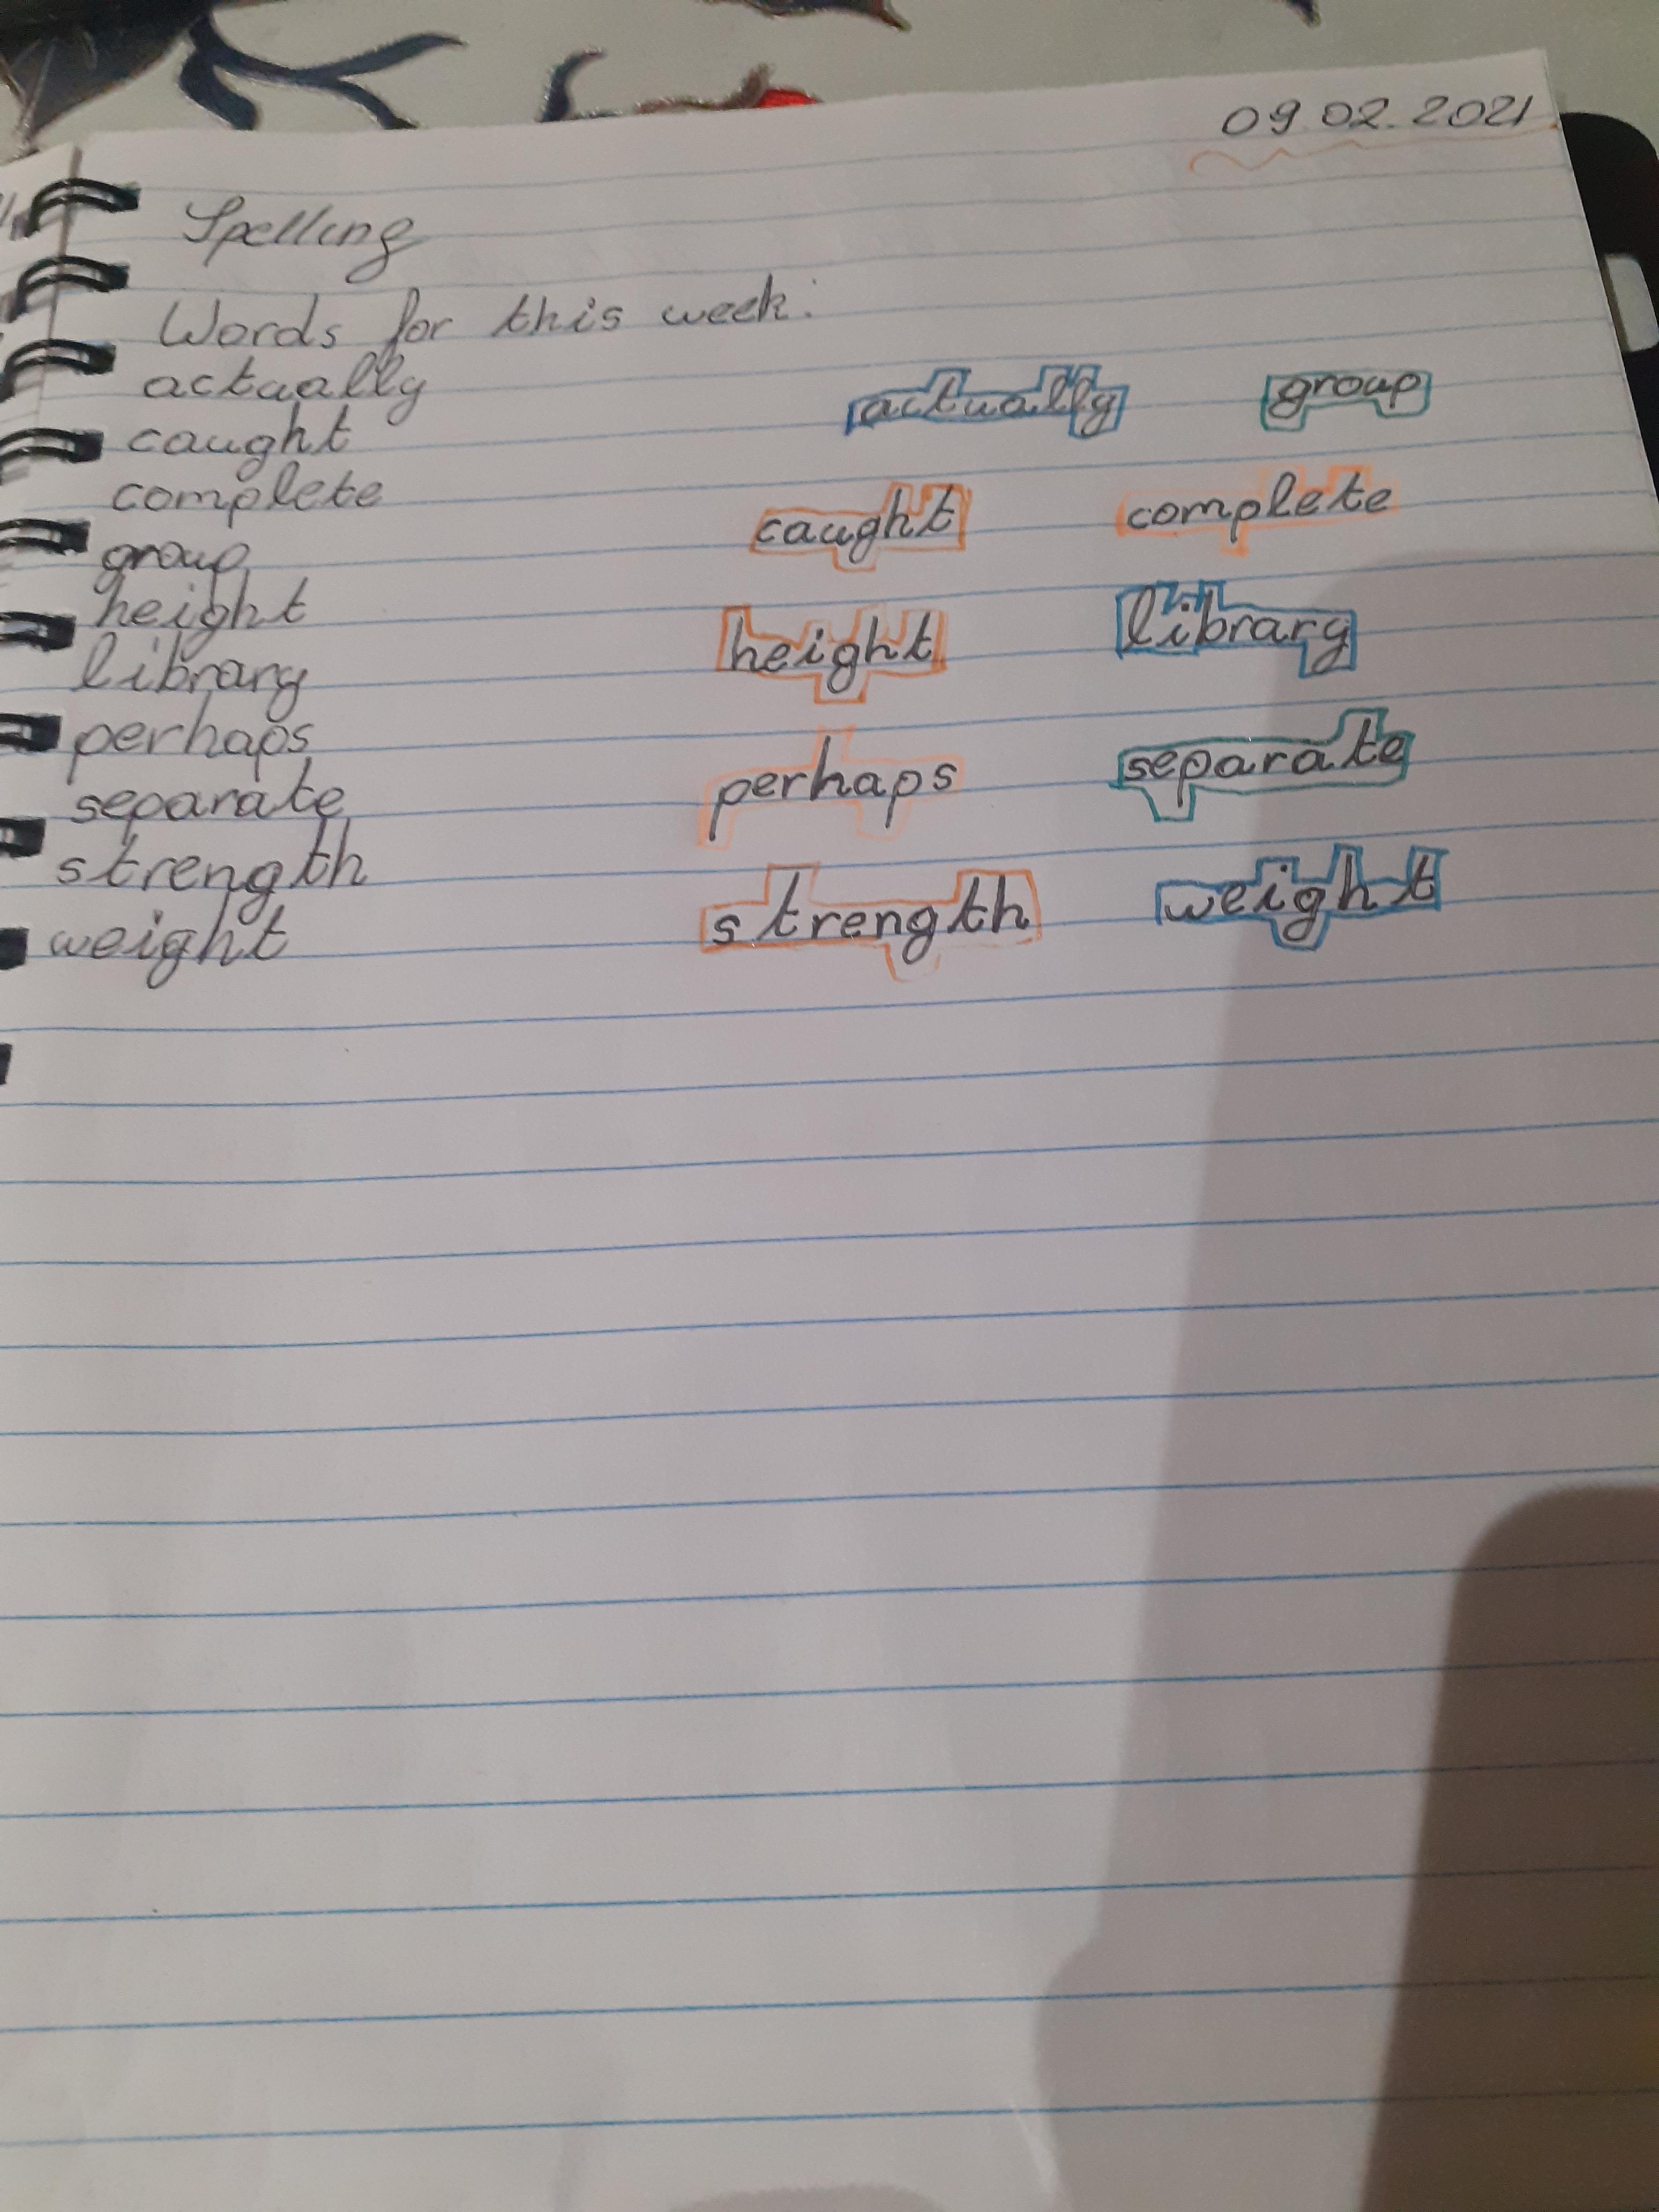 09.02.2021
Spelling
Words for this week:
actually
caught
complete
group
height
library
perhaps
separate
strength
weight
actually group
caught complete
height library
perhaps separate
strength weight